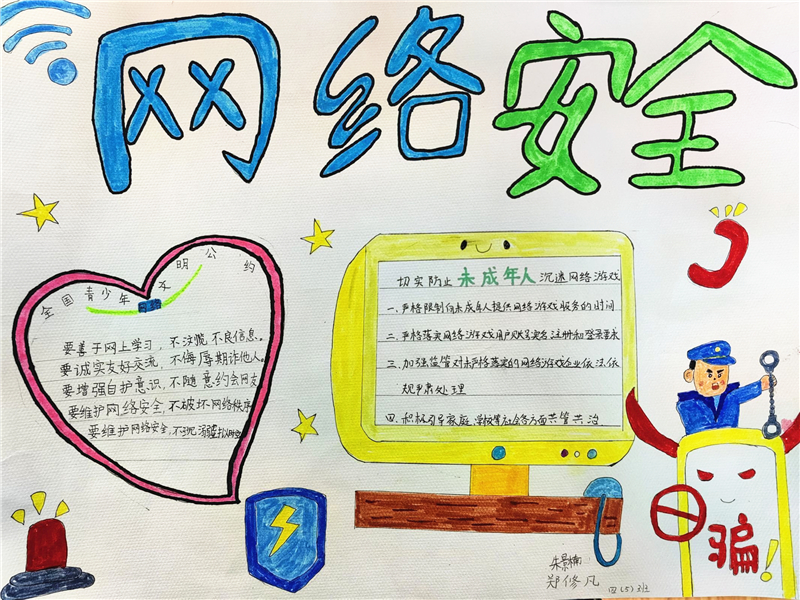 网络安全
全国青少年 文明公约
要善于网上学习，不浏慌不良信息。
要诚实友好交流，不侮辱期诈他人。
要增强自护意识，不随意约会网友
要维护网络安全，不破坏网络秩序
要维护网络安全，不沉溺虚拟
切实防止未成年人沉迷网络游戏
一.严格限制向未成年人提供网络游戏服务的时间
二.严格落实网络游戏用户账号实名注册和登录要求
三.加强监管对未严格落实的网络游戏企业依法依
规严肃处理
四.积极引导家庭、学校等社会各方面共管共治
骗!
朱景楠
郑修凡
四(5)班